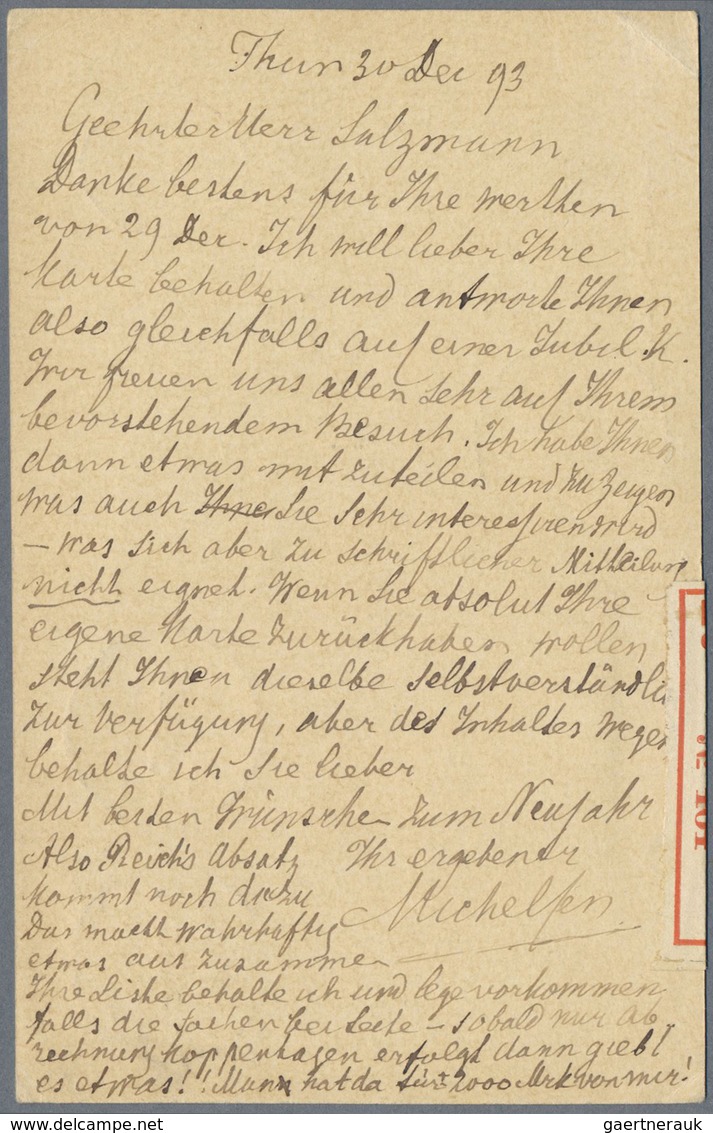 Thun 30 Dec 93
Geehrter Herr Salzmann
Danke bestens für Ihre werthen
von 29 Dec. Ich will lieber Ihre
Karte behalten und antworte Ihnen
also gleichfalls auf einer Jubil. K.
Wir freuen uns allen sehr auf Ihrem
bevorstehendem Besuch. Ich habe Ihnen
dann etwas mitzuteilen und zu zeigen
was auch Ihne Sie sehr interessiren wird
– was sich aber zu schriftlicher Mittheilung
nicht eignet. Wenn Sie absolut Ihre
eigene Karte zurückhaben wollen
steht Ihnen dieselbe selbstverständli
zur Verfügung, aber des Inhaltes wegen
behalte ich Sie lieber
Mit besten Wünschen zum Neujahr
Also Reich's Absatz Ihr ergebener
kommt noch dazu Michelsen
Das macht wahrhaftig
etwas aus zusammen
Ihre Liste behalte ich und lege vorkommen
falls die Sachen bei Seite – sobald nur Ab
rechnung Koppenhagen erfolgt dann giebt
es etwas!! Mann hat da für 2000 Mrk von mir!
№ 101
gaertnerauk